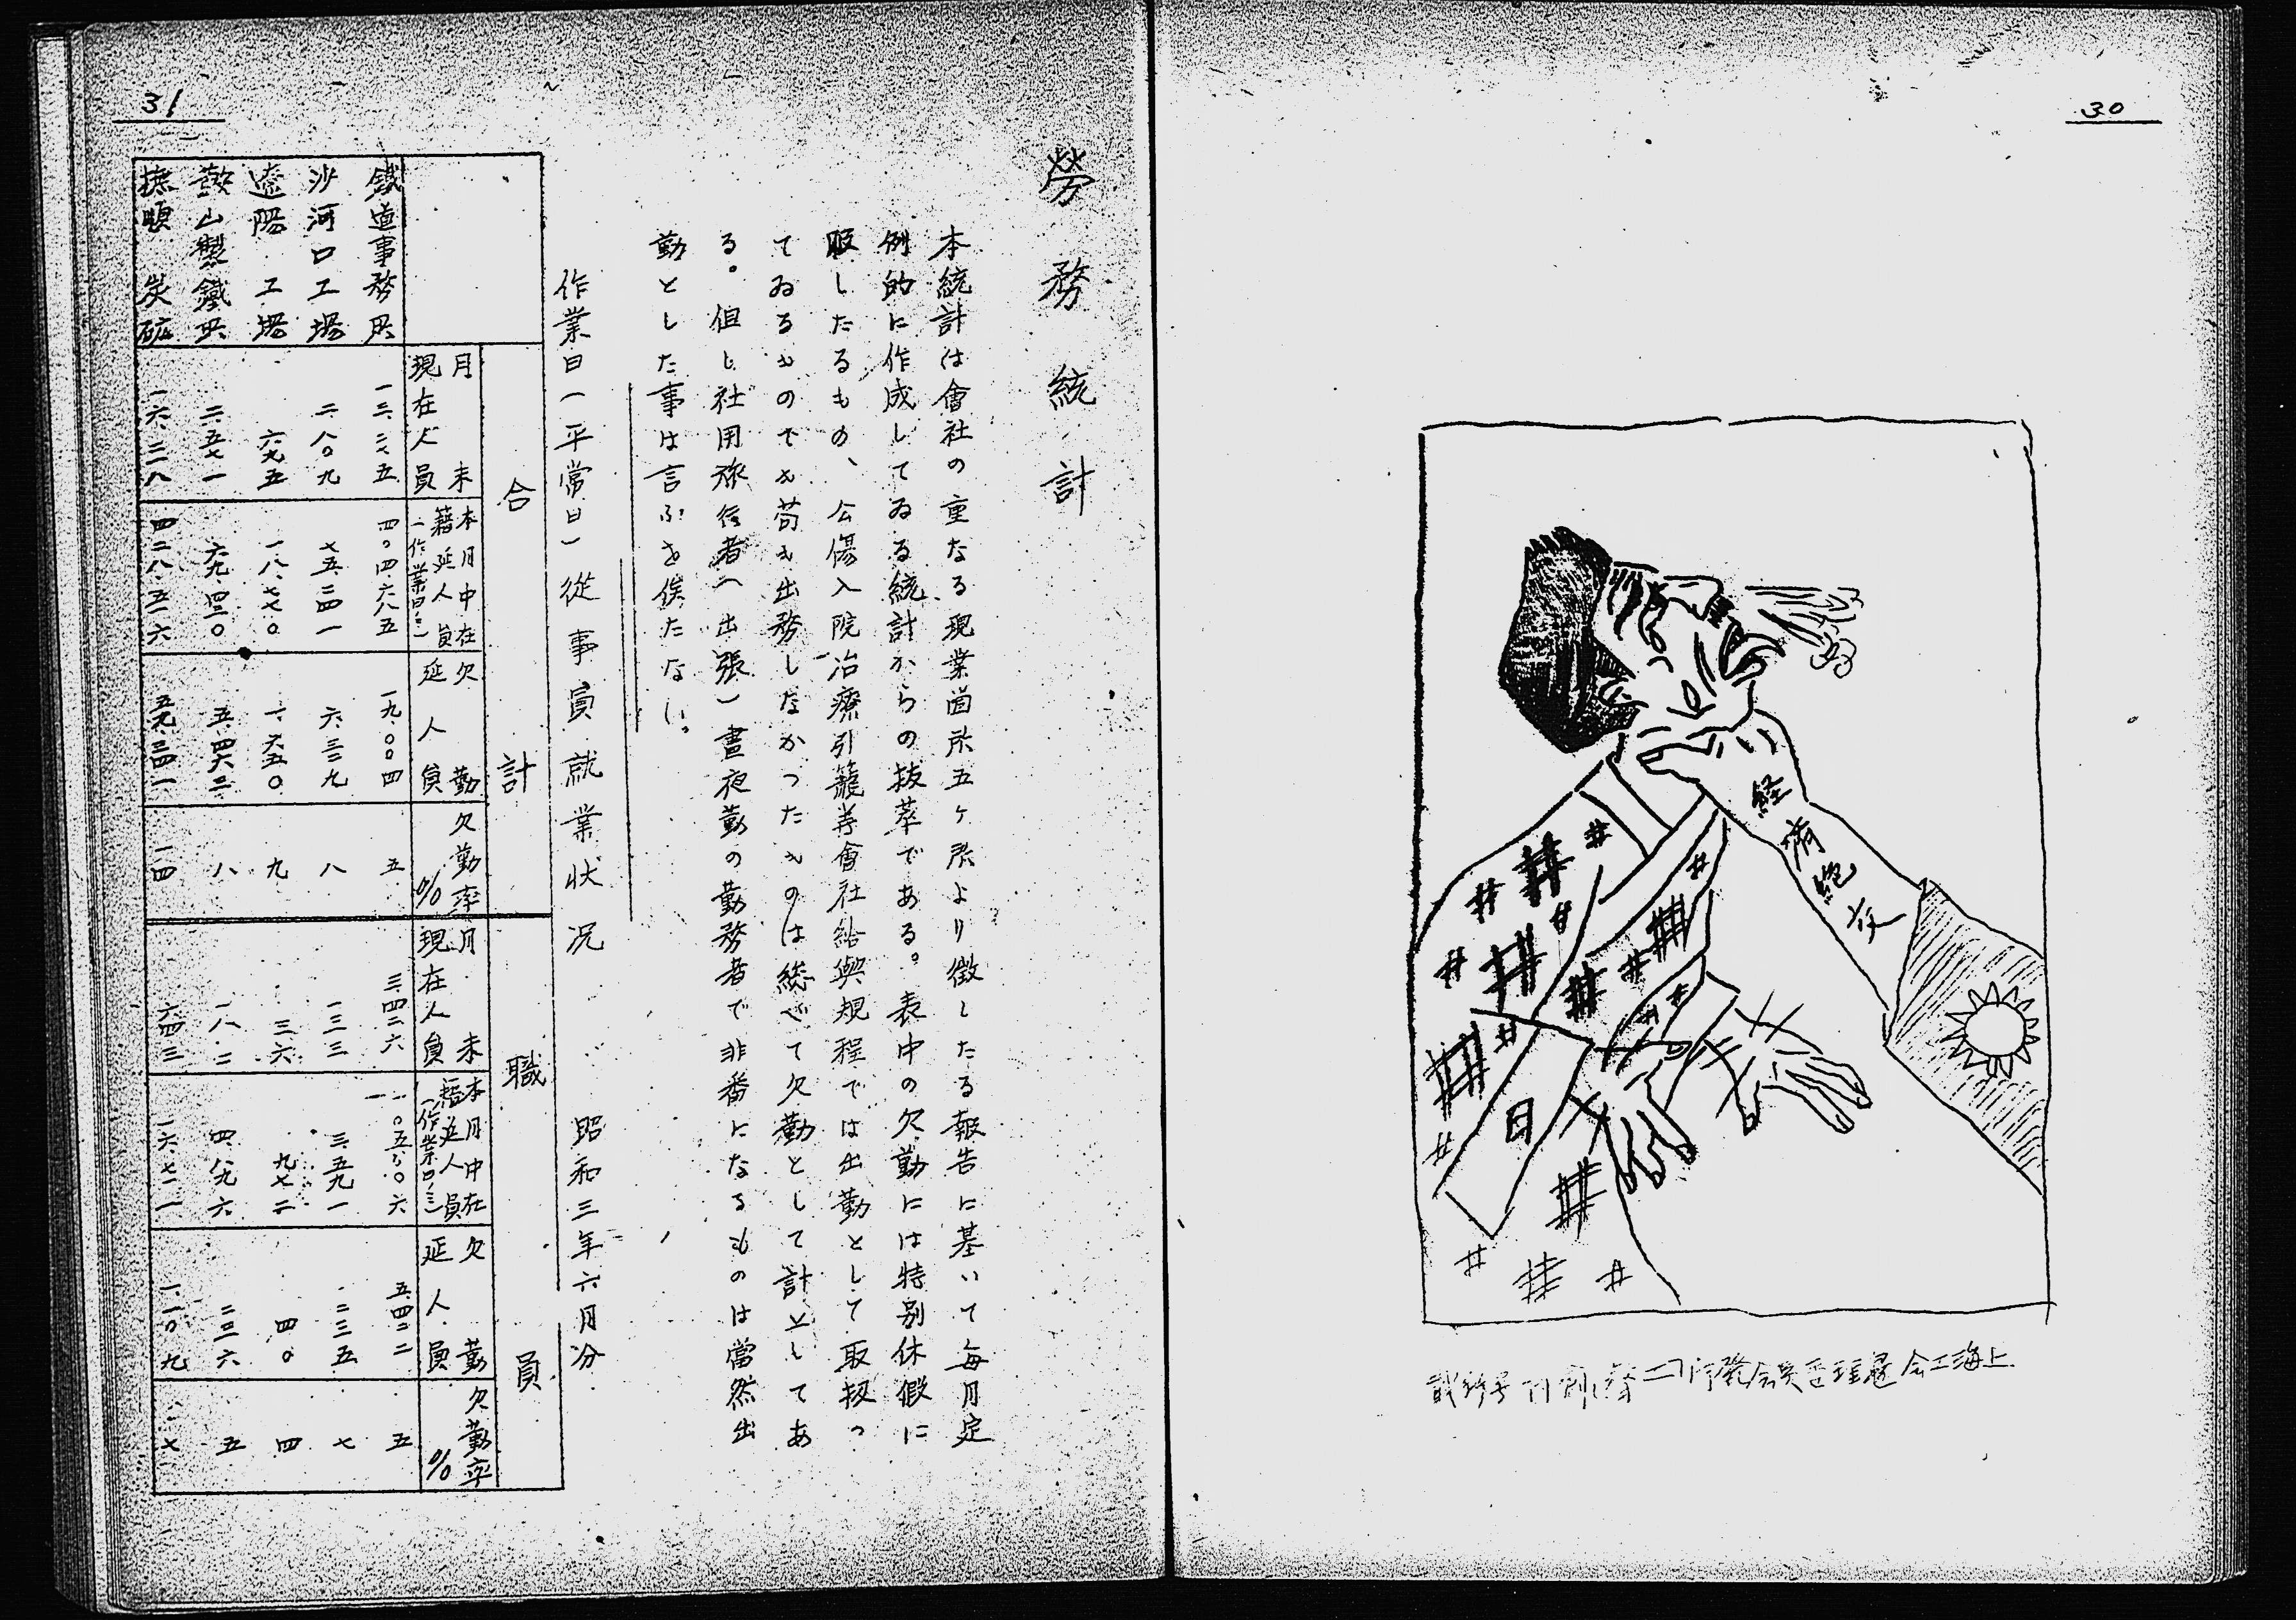 30
経済絶交
日
上海工会
31
勞務統計
本統計は會社の重なる現業箇所五ヶ所より徴したる報告に基いて毎月定
例的に作成してゐる統計からの抜萃である。表中の欠勤には特別休假に
服したるもの、公傷入院治療引籠等會社給與規程では出勤として取扱つ
てゐるものでも苟も出務しなかつたものは総べて欠勤として計上してあ
る。但し社用旅行者(出張)晝夜勤の勤務者で非番になるものは當然出
勤とした事は言ふを俟たない。
作業日(平常日)從事員就業状况 昭和三年六月分
合計 職員
月末現在人員 本月中在籍延人員(作業日) 欠勤延人員 欠勤率% 月末現在人員 本月中在籍延人員(作業日) 欠勤延人員 欠勤率%
鐵道事務所 四〇四.六八五 一九.〇〇四 五 三.四二六 五.四二二 五
沙河口工場 二.八〇九 七五.三四一 六.三三九 八 一三三 三.五九一 二三五 七
遼陽工場 六七五 一八.七七〇 一.六五〇 九 三六 九七二 四〇 四
鞍山製鐵所 二.五七一 六九.四三〇 五.四六二 八 一八二 四.八九六 二三六 五
撫順炭砿 一六.三一八 四二八.五一六 五九.三四一 一四 六四三 一六.七一一 一.一〇九 七